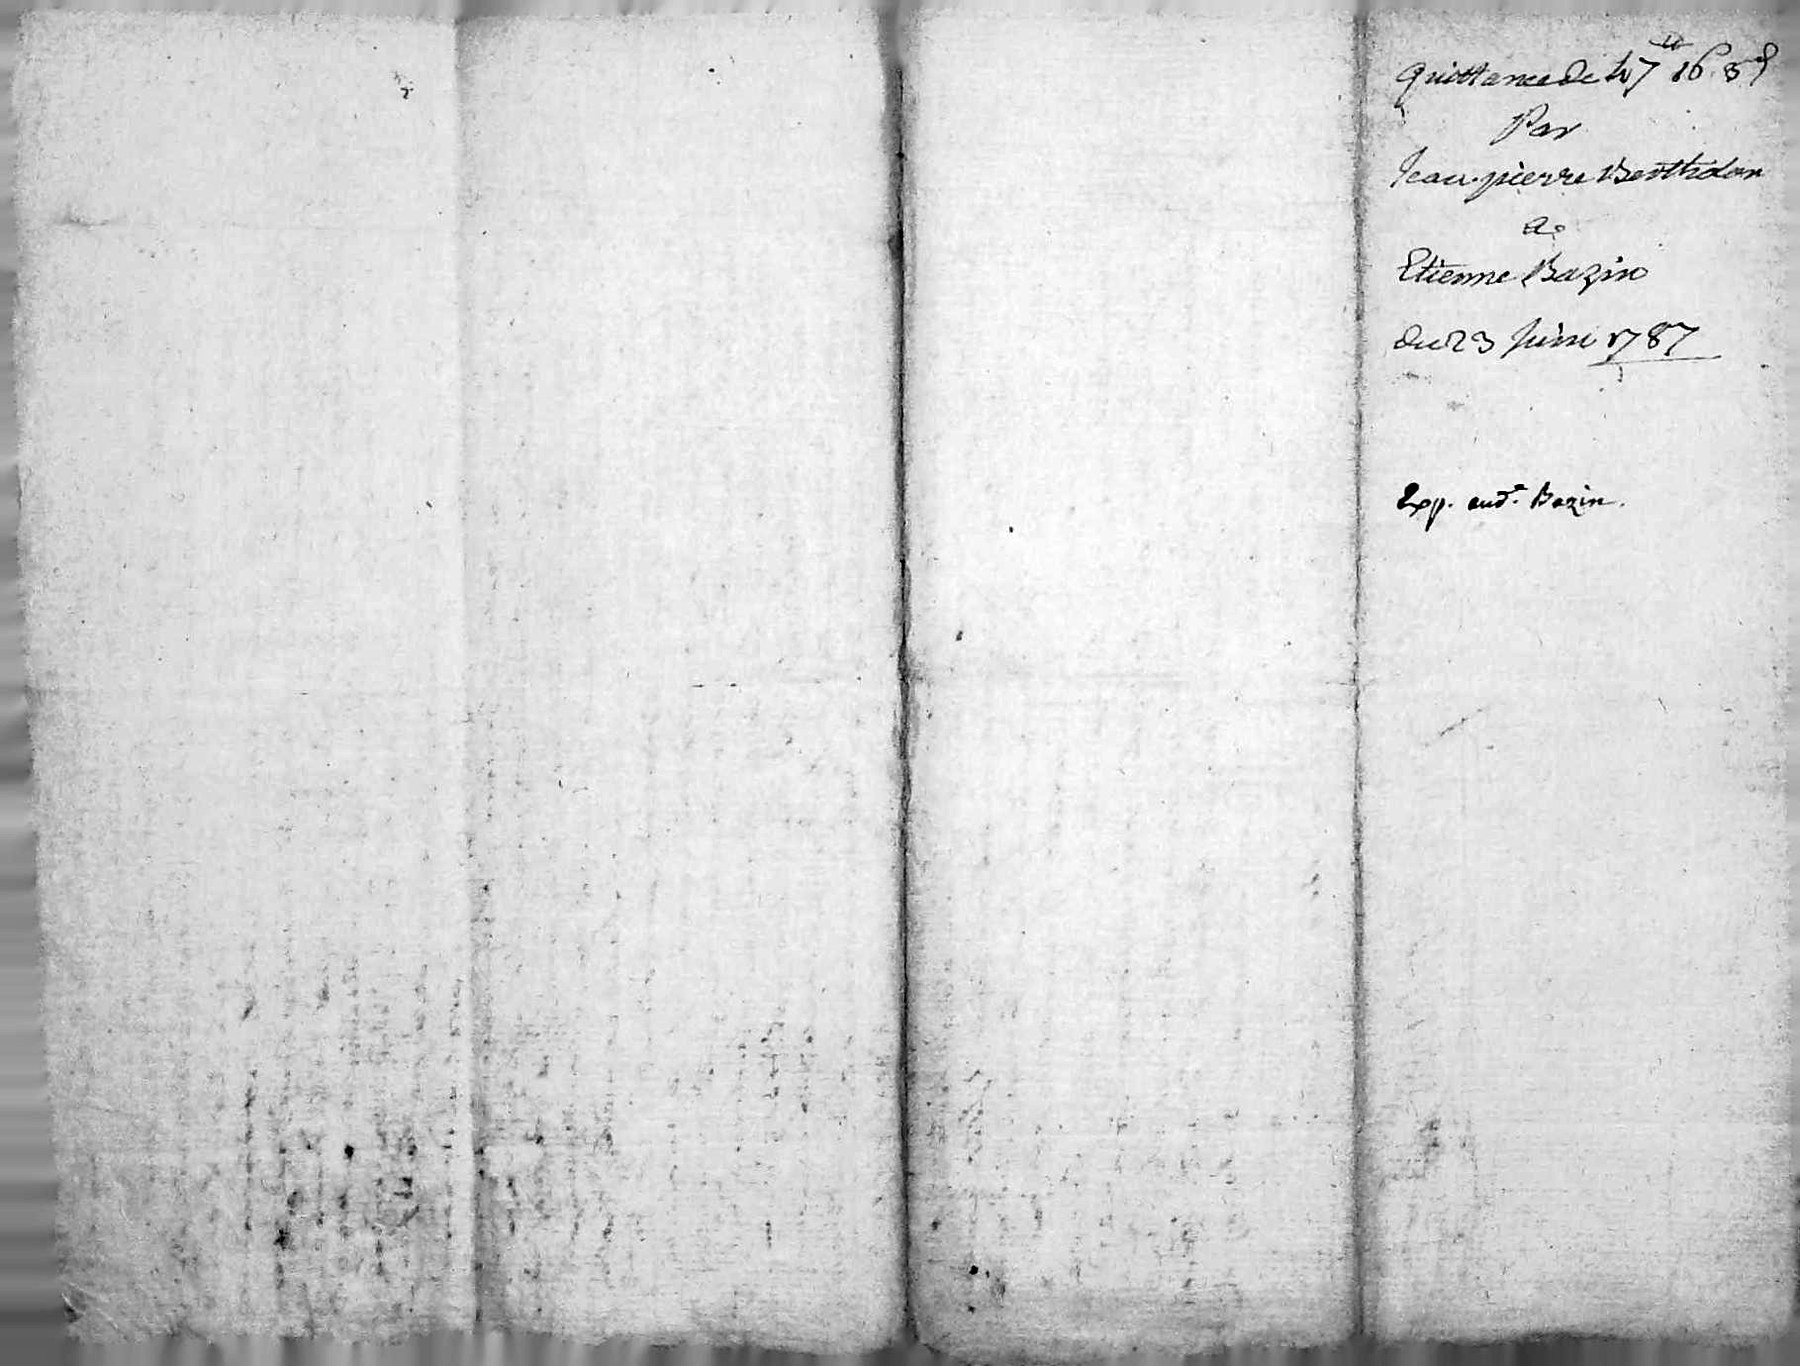 Quittance de 47tt 16s 3d
Par
Jean-pierre Berthelon
a
Etienne Bazin
du 23 Juin 1787
Exp. aud.t Bazin.